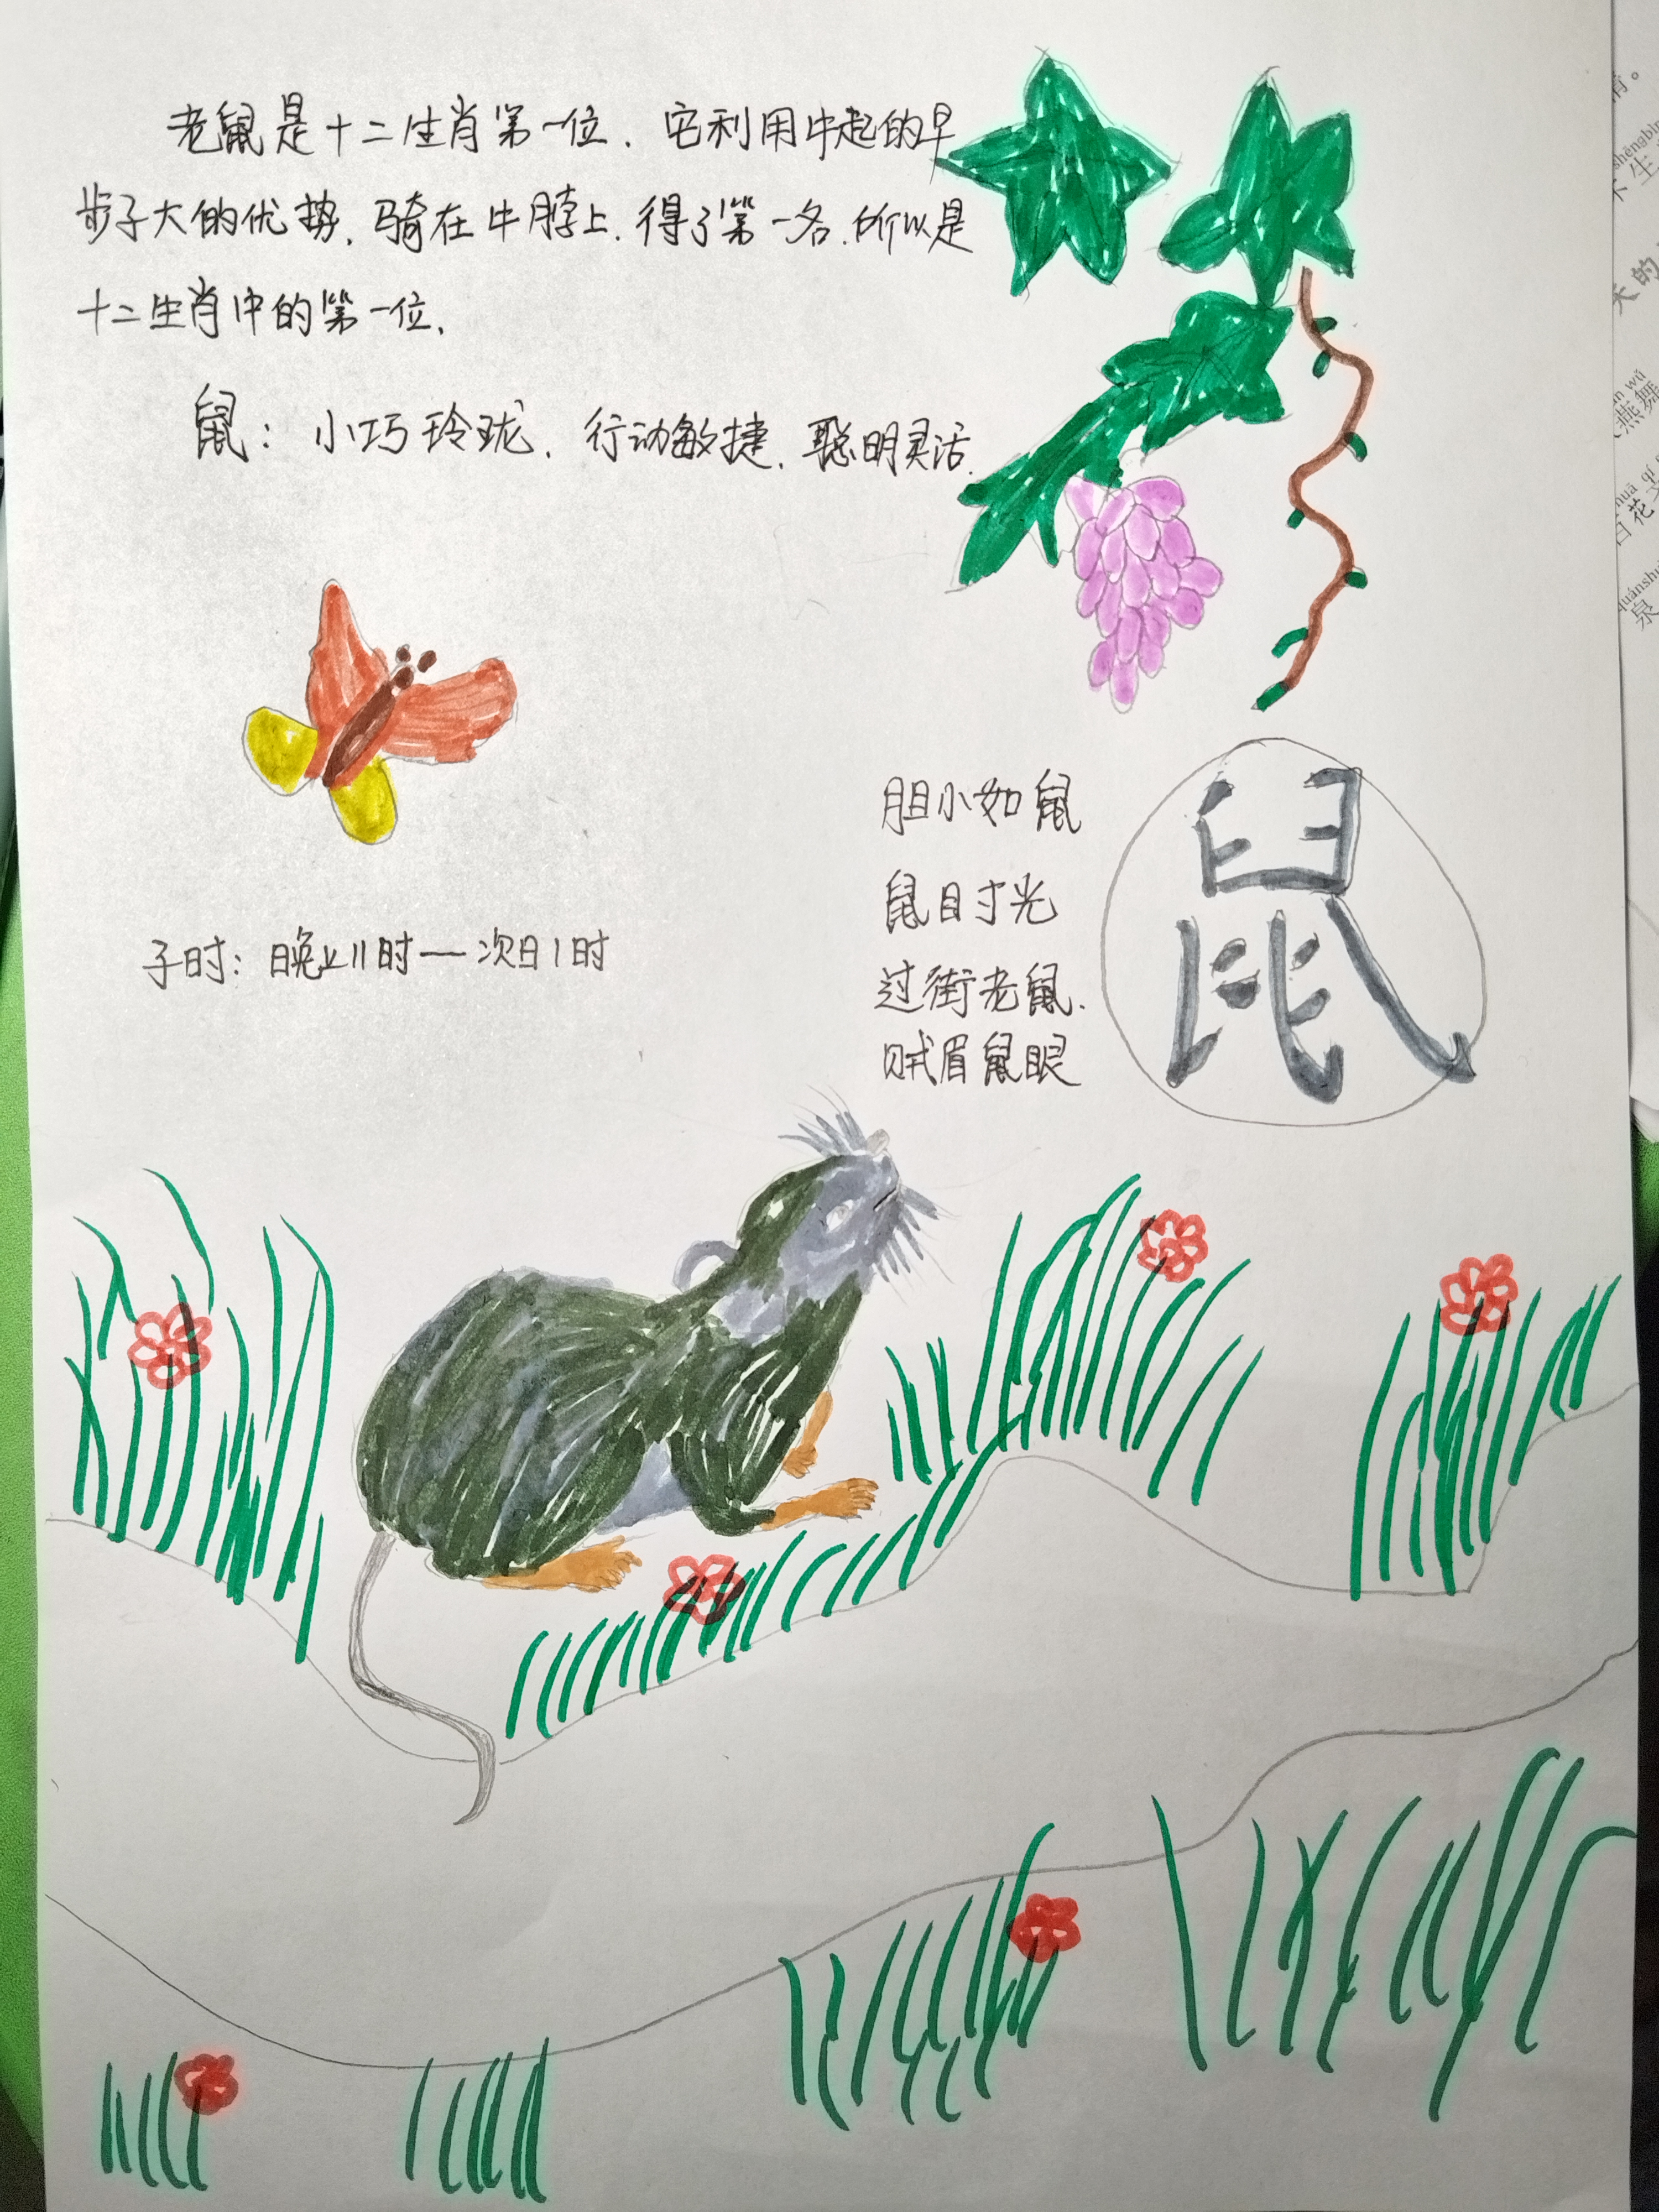 老鼠是十二生肖第一位．它利用牛起的早
步子大的优势，骑在牛脖上．得了第一名．所以是
十二生肖中的第一位．
鼠：小巧玲珑．行动敏捷．聪明灵活．
胆小如鼠
鼠目寸光
过街老鼠．
贼眉鼠眼
鼠
子时：晚上11时—次日1时